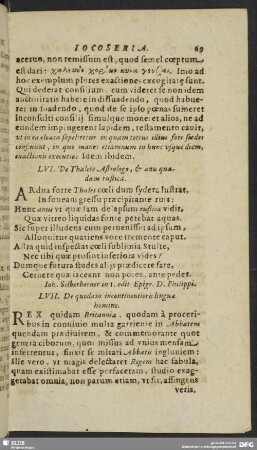 IOCOSERIA. 69
aceruo, non remissum est, quod semel cœptum
est dari: Imo ad
hoc exemplum plures exactiones excogitatę sunt.
Qui dederat consilium, cum videret se non idem
auctoritatis habere in dissuadendo, quod habue-
rer in suadendo, quod de se ipso pœnas sumeret
Inconsulti consilij simulque moneret alios, ne ad
eundem impingerent lapidem, testamento cauit,
vt in ea cloaca sepeliretur in quam totius illius fori sordes
confluunt, in qua manet etiamnum in hunc vsque diem,
exactionis executio. Idem ibidem.
LVI. De Thalete Astrologo, & anu qua-
dam rustica.
ARdua forte Thales cœli dum sydera lustrat,
In foueam gressu præcipitante ruit:
Hunc anus vt quæ iam de apsum rustica vidit,
Quæ vitreo liquidas fonte petebat aquas.
Sic super illudens cum permensisset ad ipsum,
Alloquitur quatiens voce tremente caput.
Astra quid inspectas cœli sublimia Stulte,
Nec tibi quæ prosint inferiora vides?
Dumque futura studes alijs prædicere fara,
Cernere quæ iacent non potes, ante pedes.
Ioh. Silberborner in 1. edit Epigr. D. Philippi.
LVII. De quodam incontinentioris linguæ
homine.
REX quidam Britanniæ, quodam à proceri-
bus in conuiuio multa garriente in Abbatem
quendam prædiuitem, & commemorante quot
genera ciborum, quot missus ad vnius mensam
inferrentur, finxit se mirari Abbatis ingluuiem:
Ille vero, vt magis delectaret Regem hac fabula,
quam existimabat esse perfacetam, studio exag-
gerabat omnia, non parum etiam, vt fit, affingens
veris,
SLUB
DFG